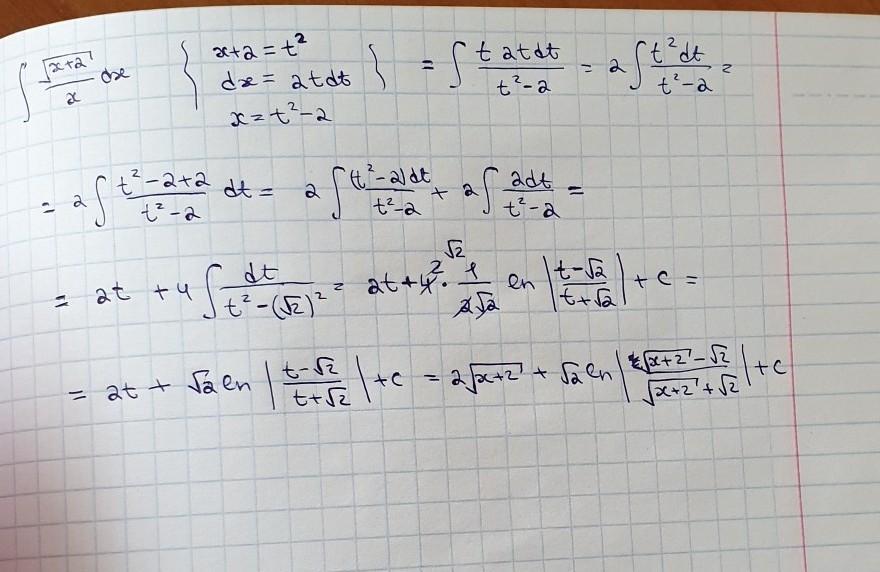 ∫ √(x+2)/x dx { x+2 = t² = ∫ t 2t dt / (t²-2) = 2 ∫ t² dt / (t²-2) =
dx = 2t dt }
x = t² - 2
= 2 ∫ (t²-2+2)/(t²-2) dt = 2 ∫ (t²-2) dt / (t²-2) + 2 ∫ 2dt / (t²-2) =
= 2t + 4 ∫ dt / (t² - (√2)²) = 2t + 4 2 · √2 1 / (2√2) ln |(t-√2)/(t+√2)| + c =
= 2t + √2 ln |(t-√2)/(t+√2)| + c = 2√(x+2) + √2 ln |(√(x+2) - √2)/(√(x+2) + √2)| + c